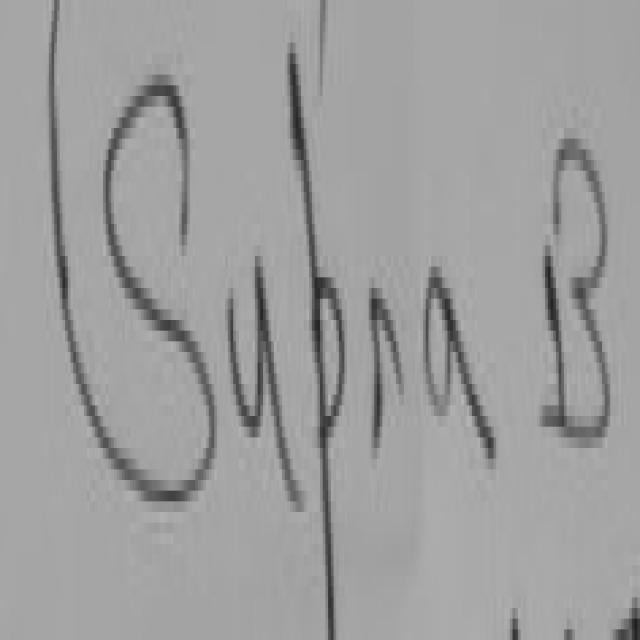 Supra B